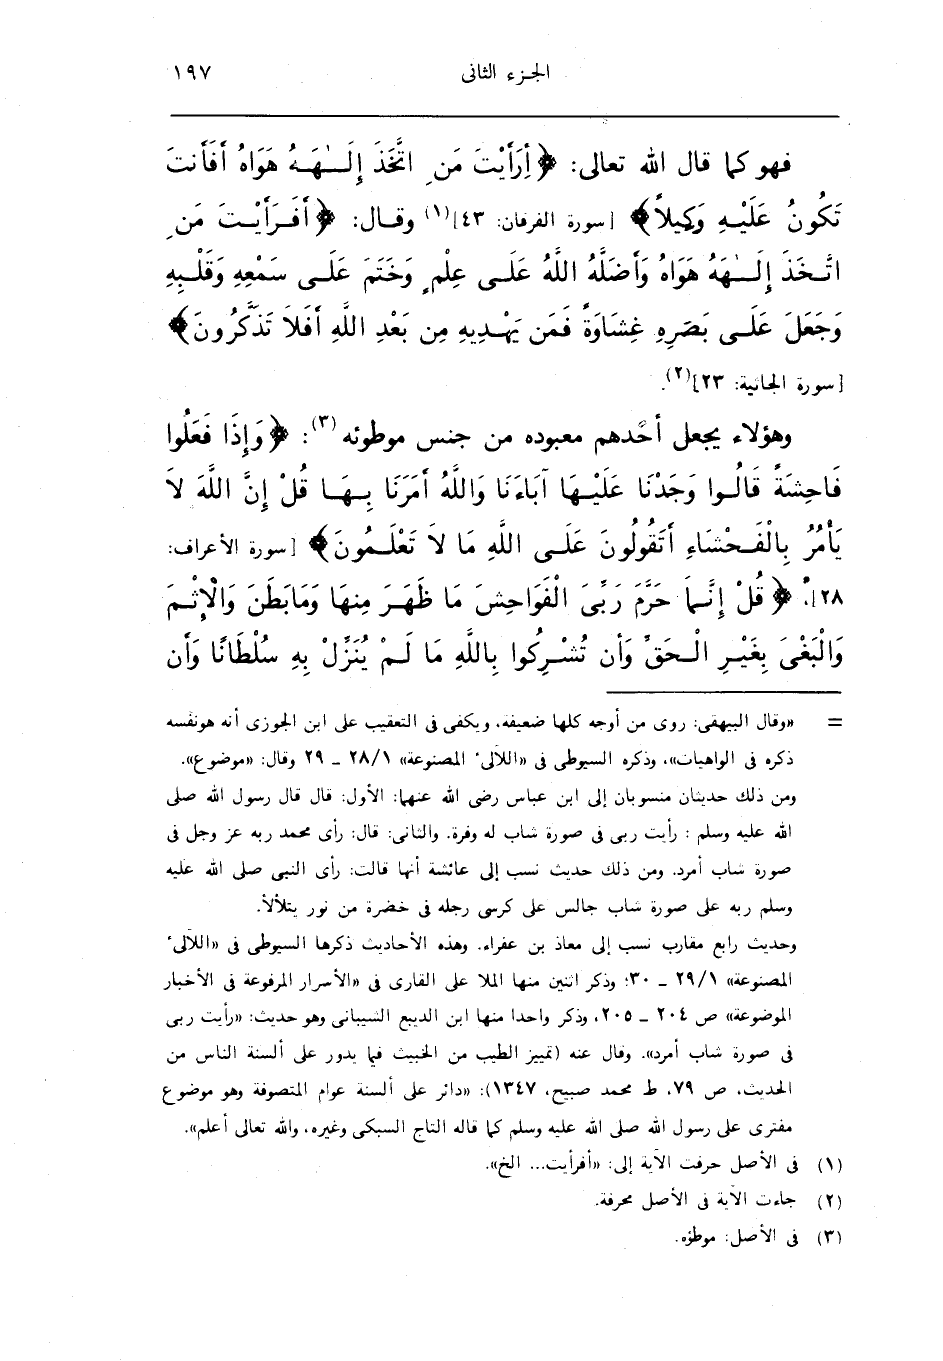 الجزء الثانى ١٩٧
فهو كما قال الله تعالى: ﴿أَرَأَيْتَ مَنِ اتَّخَذَ إِلَـٰهَهُ هَوَاهُ أَفَأَنتَ
تَكُونُ عَلَيْهِ وَكِيلاً﴾ [سورة الفرقان: ٤٣](١) وقال: ﴿أَفَرَأَيْتَ مَنِ
اتَّخَذَ إِلَـٰهَهُ هَوَاهُ وَأَضَلَّهُ اللَّهُ عَلَى عِلْمٍ وَخَتَمَ عَلَى سَمْعِهِ وَقَلْبِهِ
وَجَعَلَ عَلَى بَصَرِهِ غِشَاوَةً فَمَن يَهْدِيهِ مِن بَعْدِ اللَّهِ أَفَلاَ تَذَكَّرُونَ﴾
[سورة الجاثية: ٢٣](٢).
وهؤلاء يجعل أحدهم معبوده من جنس موطوئه(٣): ﴿وَإِذَا فَعَلُوا
فَاحِشَةً قَالُوا وَجَدْنَا عَلَيْهَا آبَاءَنَا وَاللَّهُ أَمَرَنَا بِهَا قُلْ إِنَّ اللَّهَ لاَ
يَأْمُرُ بِالْفَحْشَاءِ أَتَقُولُونَ عَلَى اللَّهِ مَا لاَ تَعْلَمُونَ﴾ [سورة الأعراف:
٢٨]. ﴿قُلْ إِنَّمَا حَرَّمَ رَبِّىَ الْفَوَاحِشَ مَا ظَهَرَ مِنْهَا وَمَا بَطَنَ وَالْإِثْمَ
وَالْبَغْىَ بِغَيْرِ الْحَقِّ وَأَن تُشْرِكُوا بِاللَّهِ مَا لَمْ يُنَزِّلْ بِهِ سُلْطَانًا وَأَن
= «وقال البيهقى: روى من أوجه كلها ضعيفة، ويكفى فى التعقيب على ابن الجوزى أنه هو نفسه
ذكره فى الواهيات»، وذكره السيوطى فى «اللآلىء المصنوعة» ٢٨/١ ـ ٢٩ وقال: «موضوع».
ومن ذلك حديثان منسوبان إلى ابن عباس رضى الله عنهما: الأول: قال قال رسول الله صلى
الله عليه وسلم: رأيت ربى فى صورة شاب له وفرة. والثانى: قال: رأى محمد ربه عز وجل فى
صورة شاب أمرد. ومن ذلك حديث نسب إلى عائشة أنها قالت: رأى النبى صلى الله عليه
وسلم ربه على صورة شاب جالس على كرسى رجله فى خضرة من نور يتلألأ.
وحديث رابع مقارب نسب إلى معاذ بن عفراء. وهذه الأحاديث ذكرها السيوطى فى «اللآلىء
المصنوعة» ٢٩/١ ـ ٣٠؛ وذكر اثنين منها الملا على القارى فى «الأسرار المرفوعة فى الأخبار
الموضوعة» ص ٢٠٤ ـ ٢٠٥، وذكر واحدا منها ابن الديبع الشيبانى وهو حديث: «رأيت ربى
فى صورة شاب أمرد». وقال عنه (تمييز الطيب من الخبيث فيما يدور على ألسنة الناس من
الحديث، ص ٧٩، ط محمد صبيح، ١٣٤٧): «دائر على ألسنة عوام المتصوفة وهو موضوع
مفترى على رسول الله صلى الله عليه وسلم كما قاله التاج السبكى وغيره، والله تعالى أعلم».
(١) فى الأصل حرفت الآية إلى: «أفرأيت... الخ».
(٢) جاءت الآية فى الأصل محرفة.
(٣) فى الأصل: موطؤه.